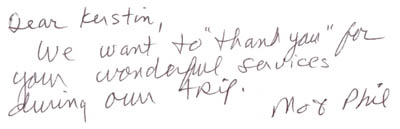 Dear Kerstin,
We want to "thank you" for
your wonderful services
during our trip.
Mo & Phil